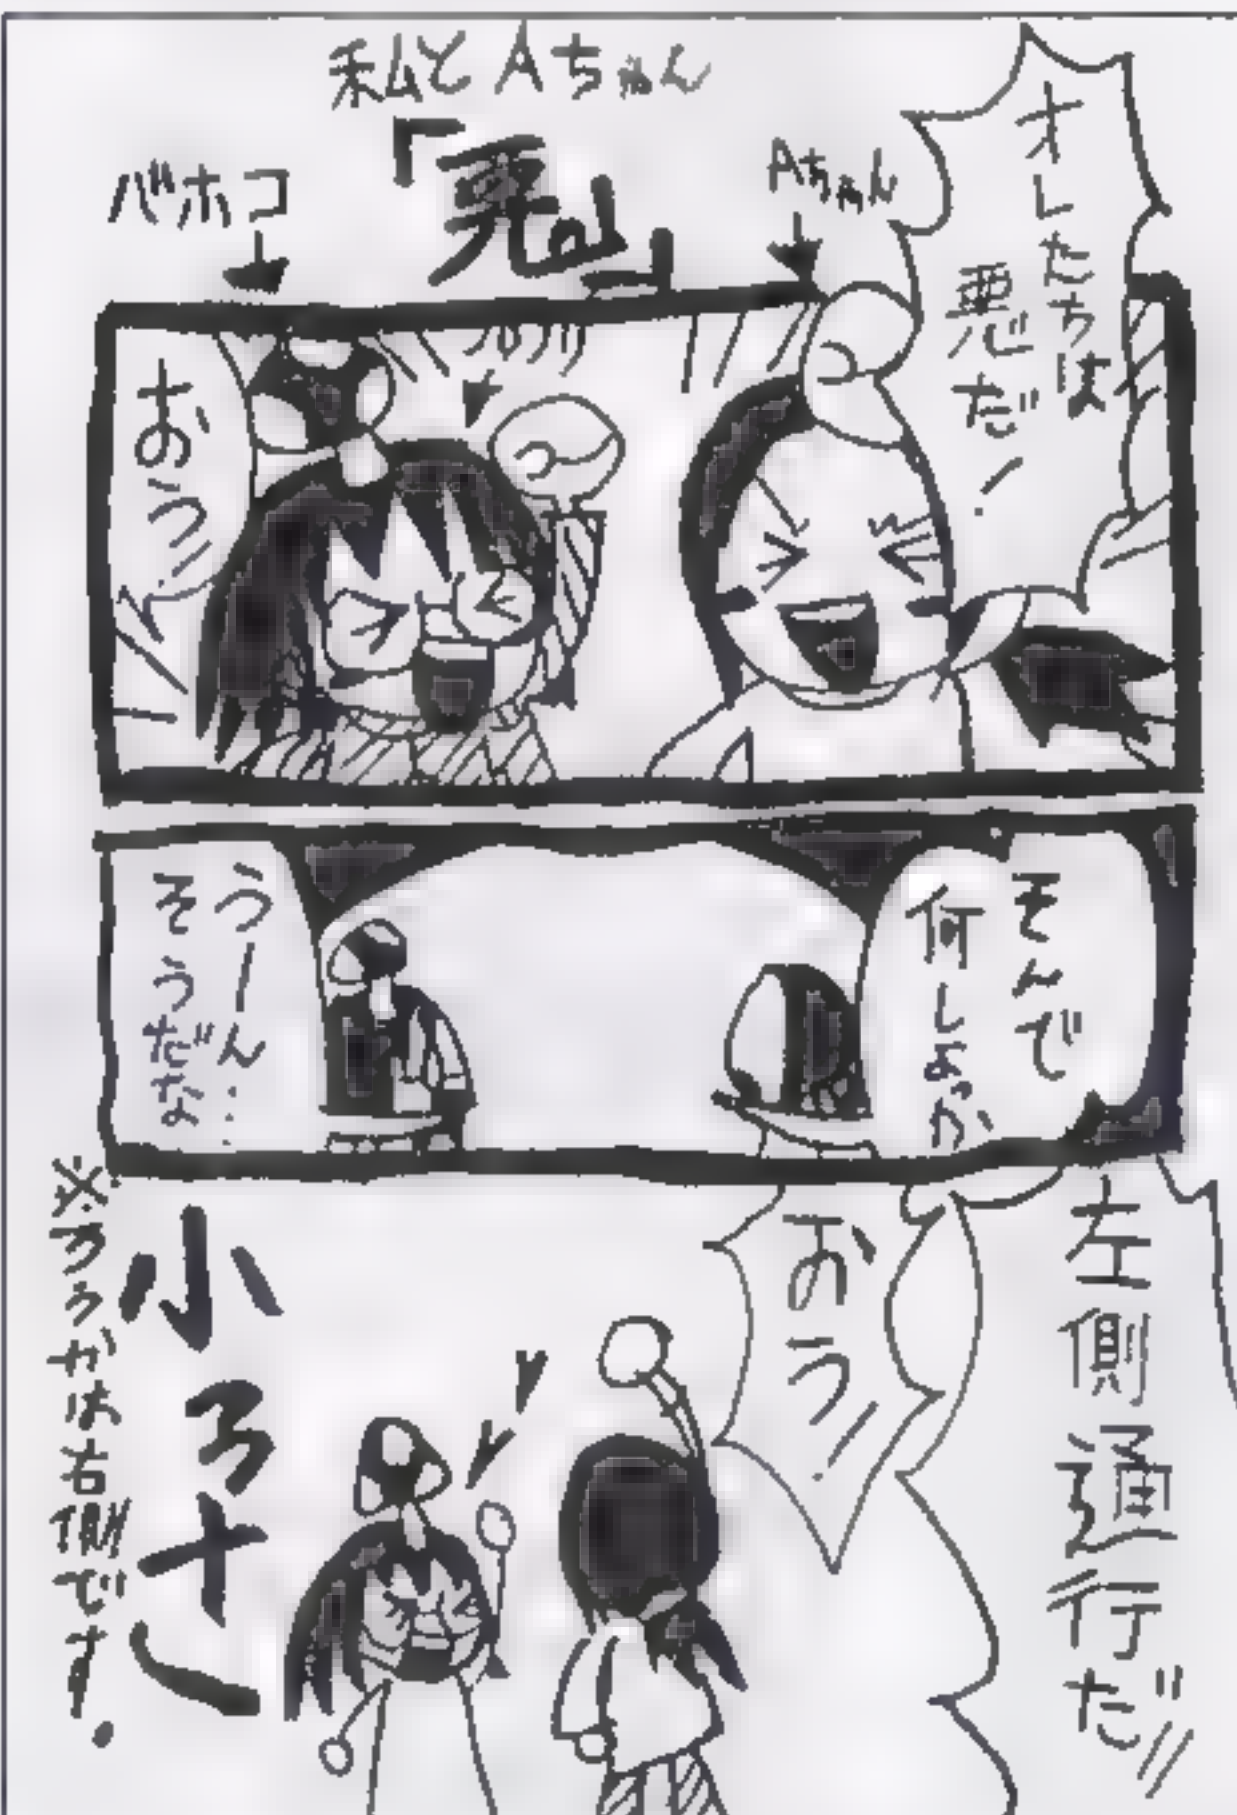 私とAちゃん
「悪」
バホコ
Aちゃん
オレたちは
悪だ！
おうっ!!
そんで
何しよっか
うーん‥
そうだな
左側通行だ!!
おう!!
小さっ
※ろうかは右側です。